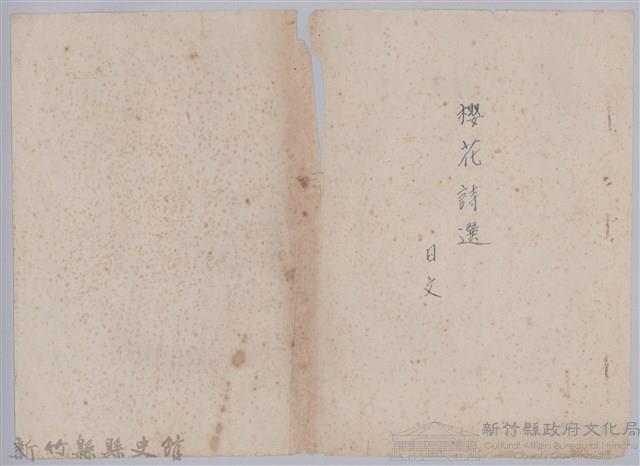 櫻花詩選
日文
新竹縣縣史館
新竹縣政府文化局
Cultural Affairs Bureau of Hsinchu
County Government